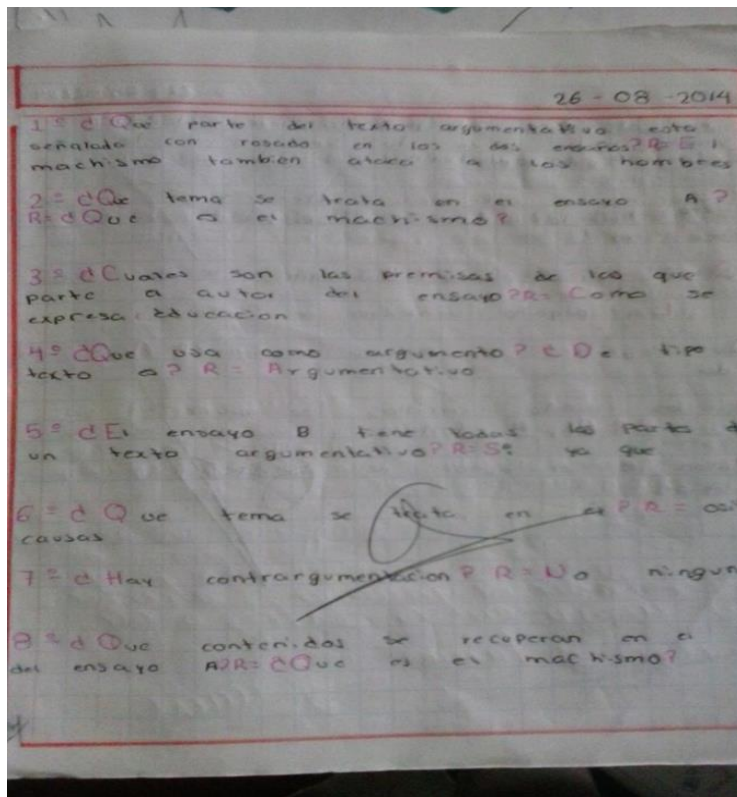 26-08-2014
1º ¿Que parte del texto argumentativo esta
señalado con rosado en los dos ensayos? R= El
machismo tambien afecta a los hombres
2º ¿Que tema se trata en el ensayo A?
R= ¿Que es el machismo?
3º ¿Cuales son las premisas de las que
parte el autor del ensayo? R= Como se
expresa. Educacion
4º ¿Que usa como argumento? ¿De tipo
texto es? R= Argumentativo
5º ¿El ensayo B tiene todas las partes d
un texto argumentativo? R= Si ya que
6º ¿Que tema se trata en el? R=
causas
7º ¿Hay contrargumentacion? R= No ningun
8º ¿Que contenidos se recuperan en el
del ensayo A? R= ¿Que es el machismo?